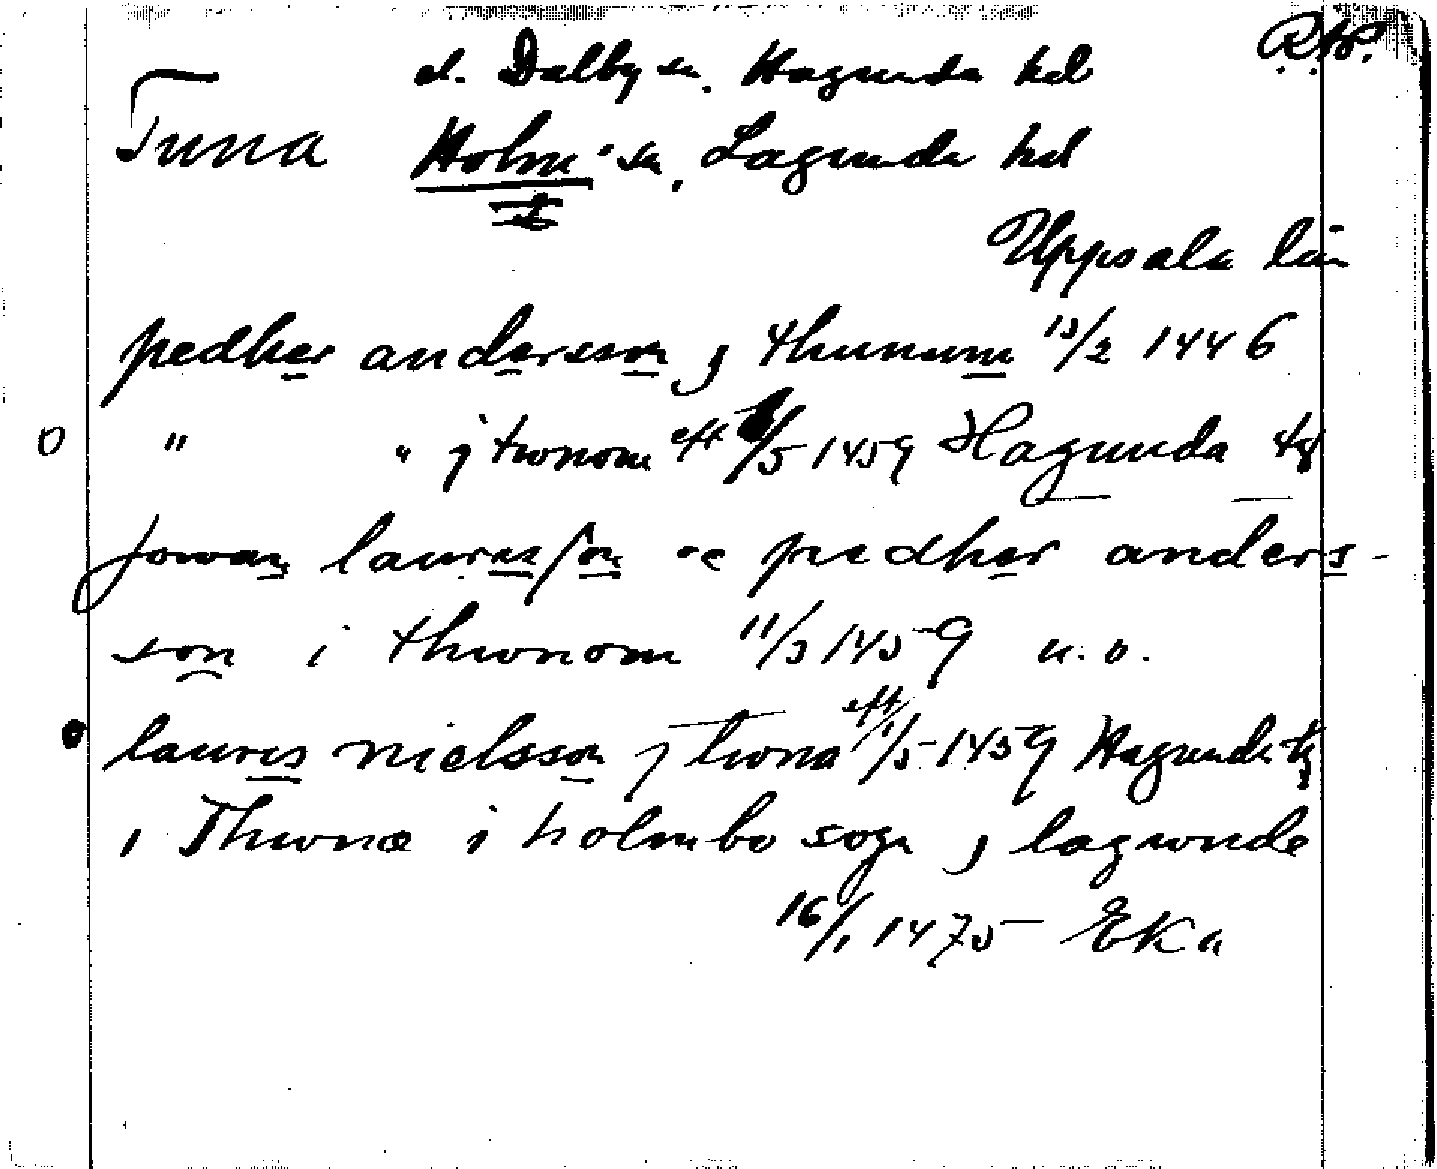 R.A.P.
el. Dalby sn. Hagunda hd
Tuna Holm sn, Lagunda hd
Uppsala län
pedher andersson j thunum 13/2 1446
" " j twnom eft 1/5 1459 Hagunda tg
Jowan laurisson oc pedher anders-
son i thwnom 11/5 1459 u. o.
lauris nielsson j twna eft 1/5 1459 Hagunda tg
i Thwnæ i holmbo sogn j lagwnde
16/1 1475 Eka